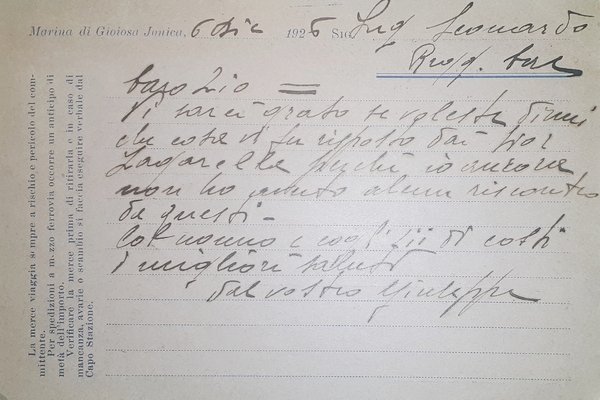 Marina di Gioiosa Jonica, 6 Dic 1926 Sig. Ing Leonardo
Regg. Cal
Caro Zio
Vi sarei grato se voleste dirmi
che cosa vi fu risposto dai Sigr
perchè io ancora
non ho avuto alcun riscontro
da questi -
Col nonno e cogli zii di costì
i migliori saluti
dal vostro Giuseppe
La merce viaggia sempre a rischio e pericolo del com-
mittente.
Per spedizioni a mezzo ferrovia occorre un anticipo di
metà dell'importo.
Verificare la merce prima di ritirarla e in caso di
mancanza, avarie o scambio si faccia eseguire verbale dal
Capo Stazione.